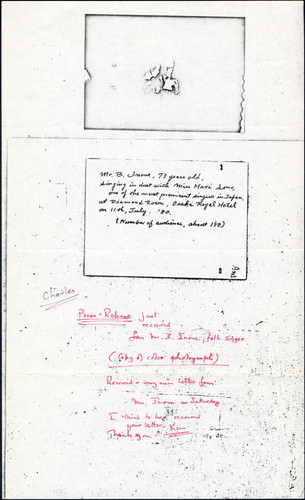 Mr. B. Inoue, 73 years old,
singing in duet with Miss Mari Sono,
one of the most prominent singers in Japan,
at Diamond Room, Osaka Royal Hotel
on 11th, July, '80.
(Number of audience, about 180)
Charles
Press-Release just
received
from Mr. B. Inoue, folk singer
(Copy of color photograph)
Received a very nice letter from
Mr. Inoue on Saturday
I think to have received
your letter,
Thanks again